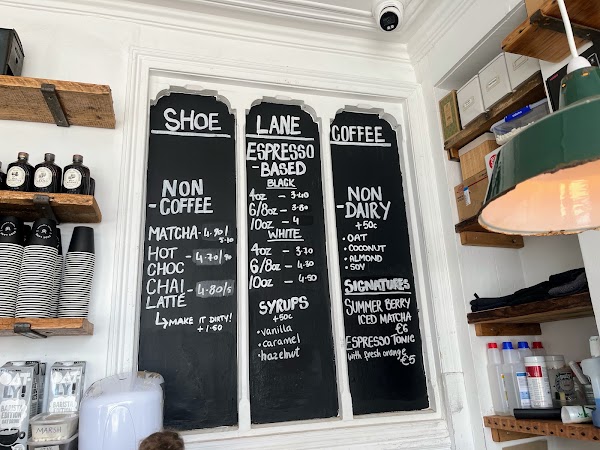 SHOE LANE COFFEE
NON
- COFFEE
MATCHA - 4.90/
5.10
HOT - 4.70/90
CHOC
CHAI - 4.80/5
LATTE
MAKE IT DIRTY!
+1.50
ESPRESSO
- BASED
BLACK
4oz - 3.40
6/8oz - 3.80
10oz - 4
WHITE
4oz - 3.70
6/8oz - 4.30
10oz - 4.50
SYRUPS
+50c
• vanilla
• caramel
• hazelnut
NON
- DAIRY
+50c
• OAT
• COCONUT
• ALMOND
• SOY
SIGNATURES
SUMMER BERRY
ICED MATCHA
€6
ESPRESSO TONIC
with fresh orange
€5
OATLY!
BARISTA
EDITION
MARSH